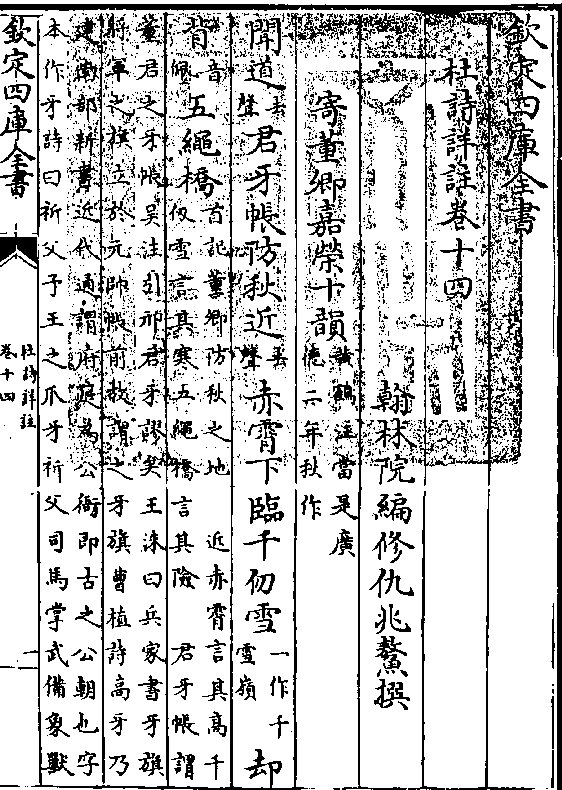 欽定四庫全書
杜詩詳註卷十四
翰林院編修仇兆鰲撰
寄董卿嘉榮十韻黃鶴注當是廣
德二年秋作
聞道去聲君牙帳防秋近去聲赤霄下臨千仞雪一作千雪嶺却
背音佩五繩橋首記董卿防秋之地 近赤霄言其高千
仞雪言其寒五繩橋言其險 君牙帳謂
董君之牙帳吳注引邢君牙謬矣王洙曰兵家書牙旗
將軍之旗立於元帥帳前故謂之牙旗曹植詩高牙乃
建衛部新書近代通謂府庭為公衙即古之公朝也字
本作牙詩曰祈父予王之爪牙祈父司馬掌武備象獸
欽定四庫全書
杜詩詳註
卷十四
一